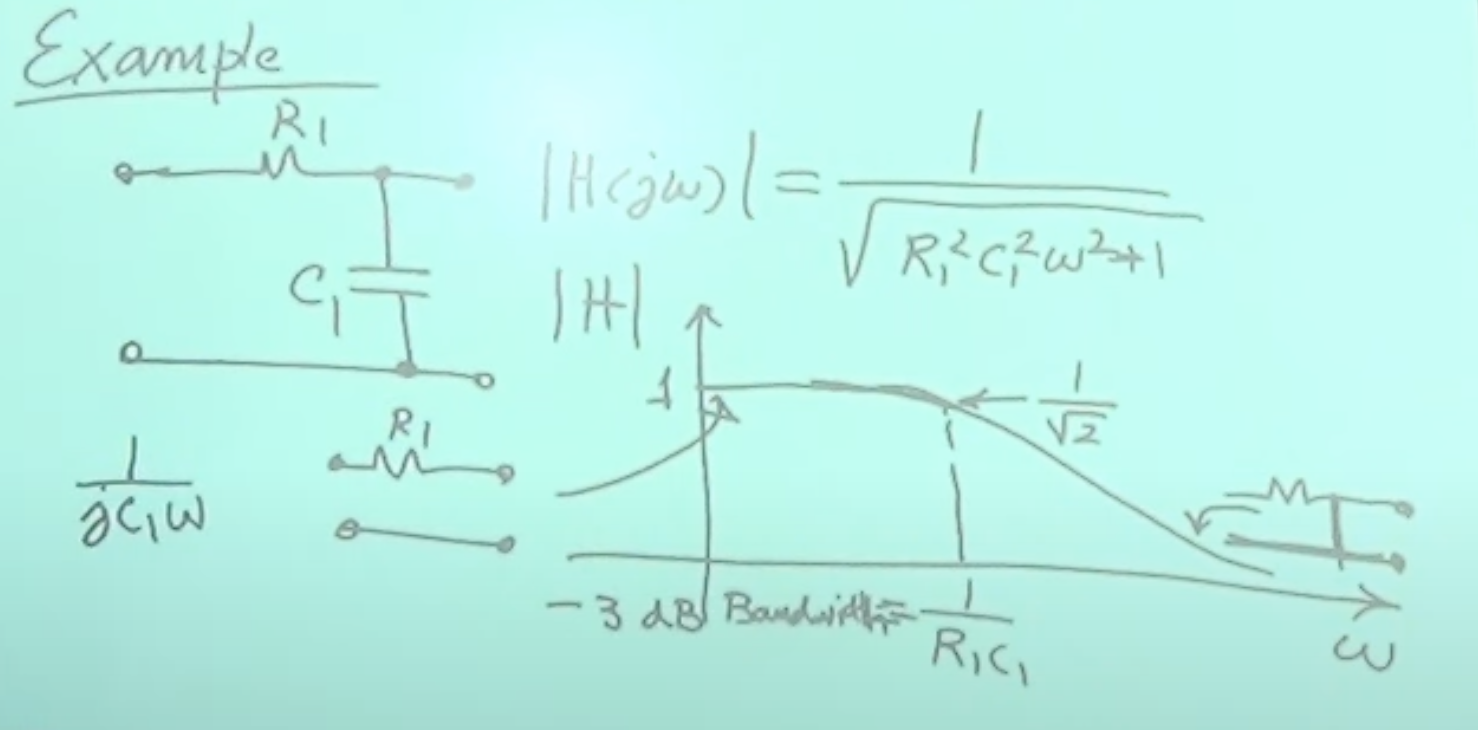 Example
R₁
|H(jω)| = 1/√(R₁²C₁²ω²+1)
C₁
|H|
1
1/√2
R₁
1/(jC₁ω)
-3 dB Bandwidth = 1/(R₁C₁)
ω